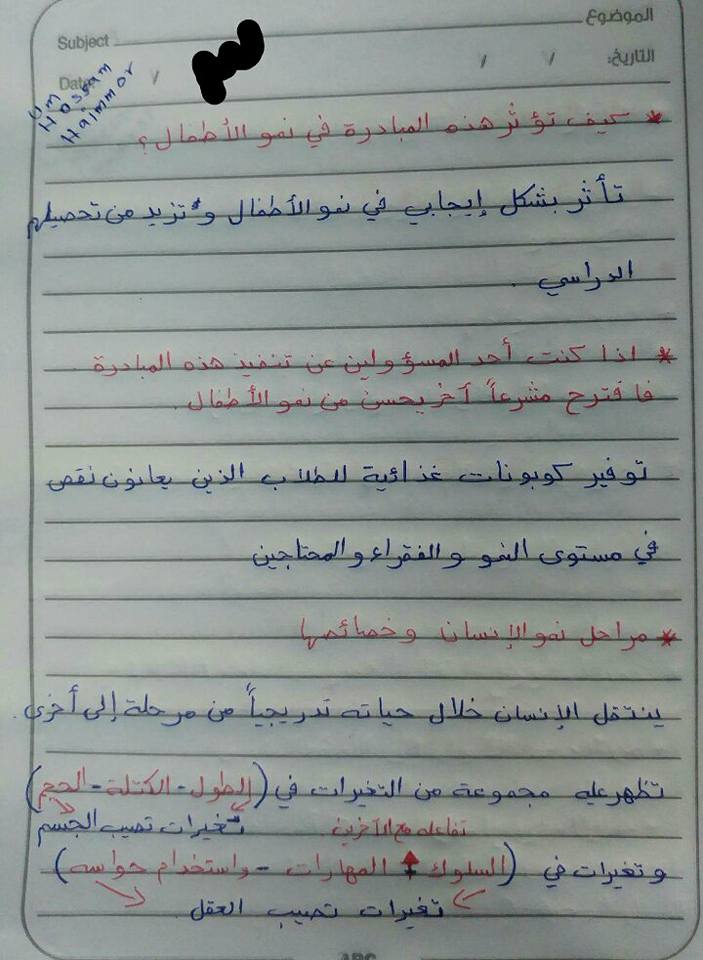 الموضوع
Subject
التاريخ: / /
Date: /
Um
Hossam
Haimmor
* كيف تؤثر هذه المبادرة في نمو الأطفال؟
تأثر بشكل إيجابي في نمو الأطفال وتزيد من تحصيلهم
الدراسي .
* اذا كنت أحد المسؤولين عن تنفيذ هذه المبادرة
فاقترح مشرعاً آخر يحسن من نمو الأطفال .
توفير كوبونات غذائية للطلاب الذين يعانون نقص
في مستوى النمو والفقراء والمحتاجين
* مراحل نمو الإنسان وخصائصها
ينتقل الإنسان خلال حياته تدريجياً من مرحلة إلى أخرى .
تظهر عليه مجموعة من التغيرات في (الطول - الكتلة - الحجم)
تغيرات تصيب الجسم
تفاعله مع الآخرين
وتغيرات في (السلوك المهارات - واستخدام حواسه)
تغيرات تصيب العقل
ABC